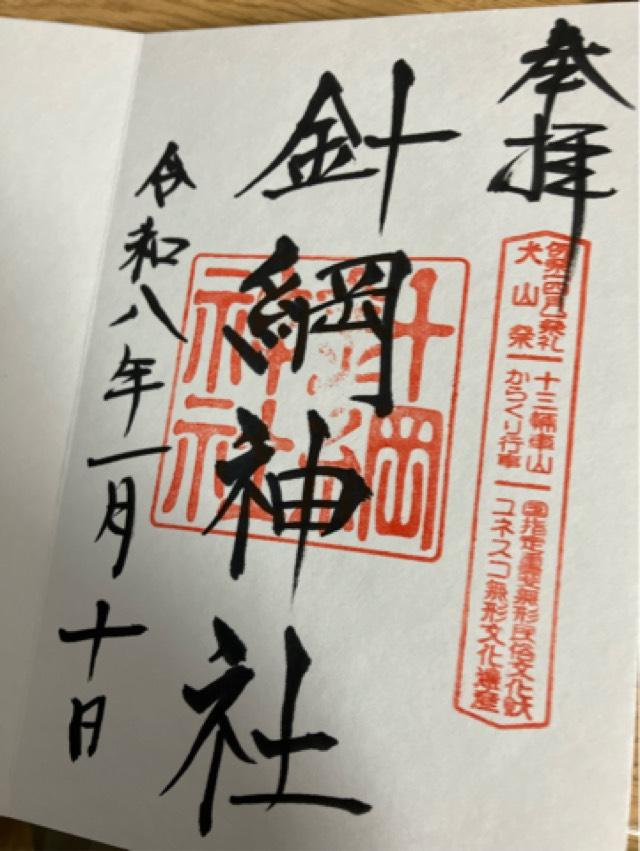 奉拝
犬山祭
十三輌車山
からくり行事
国指定重要無形民俗文化財
ユネスコ無形文化遺産
針綱神社
令和八年一月十日